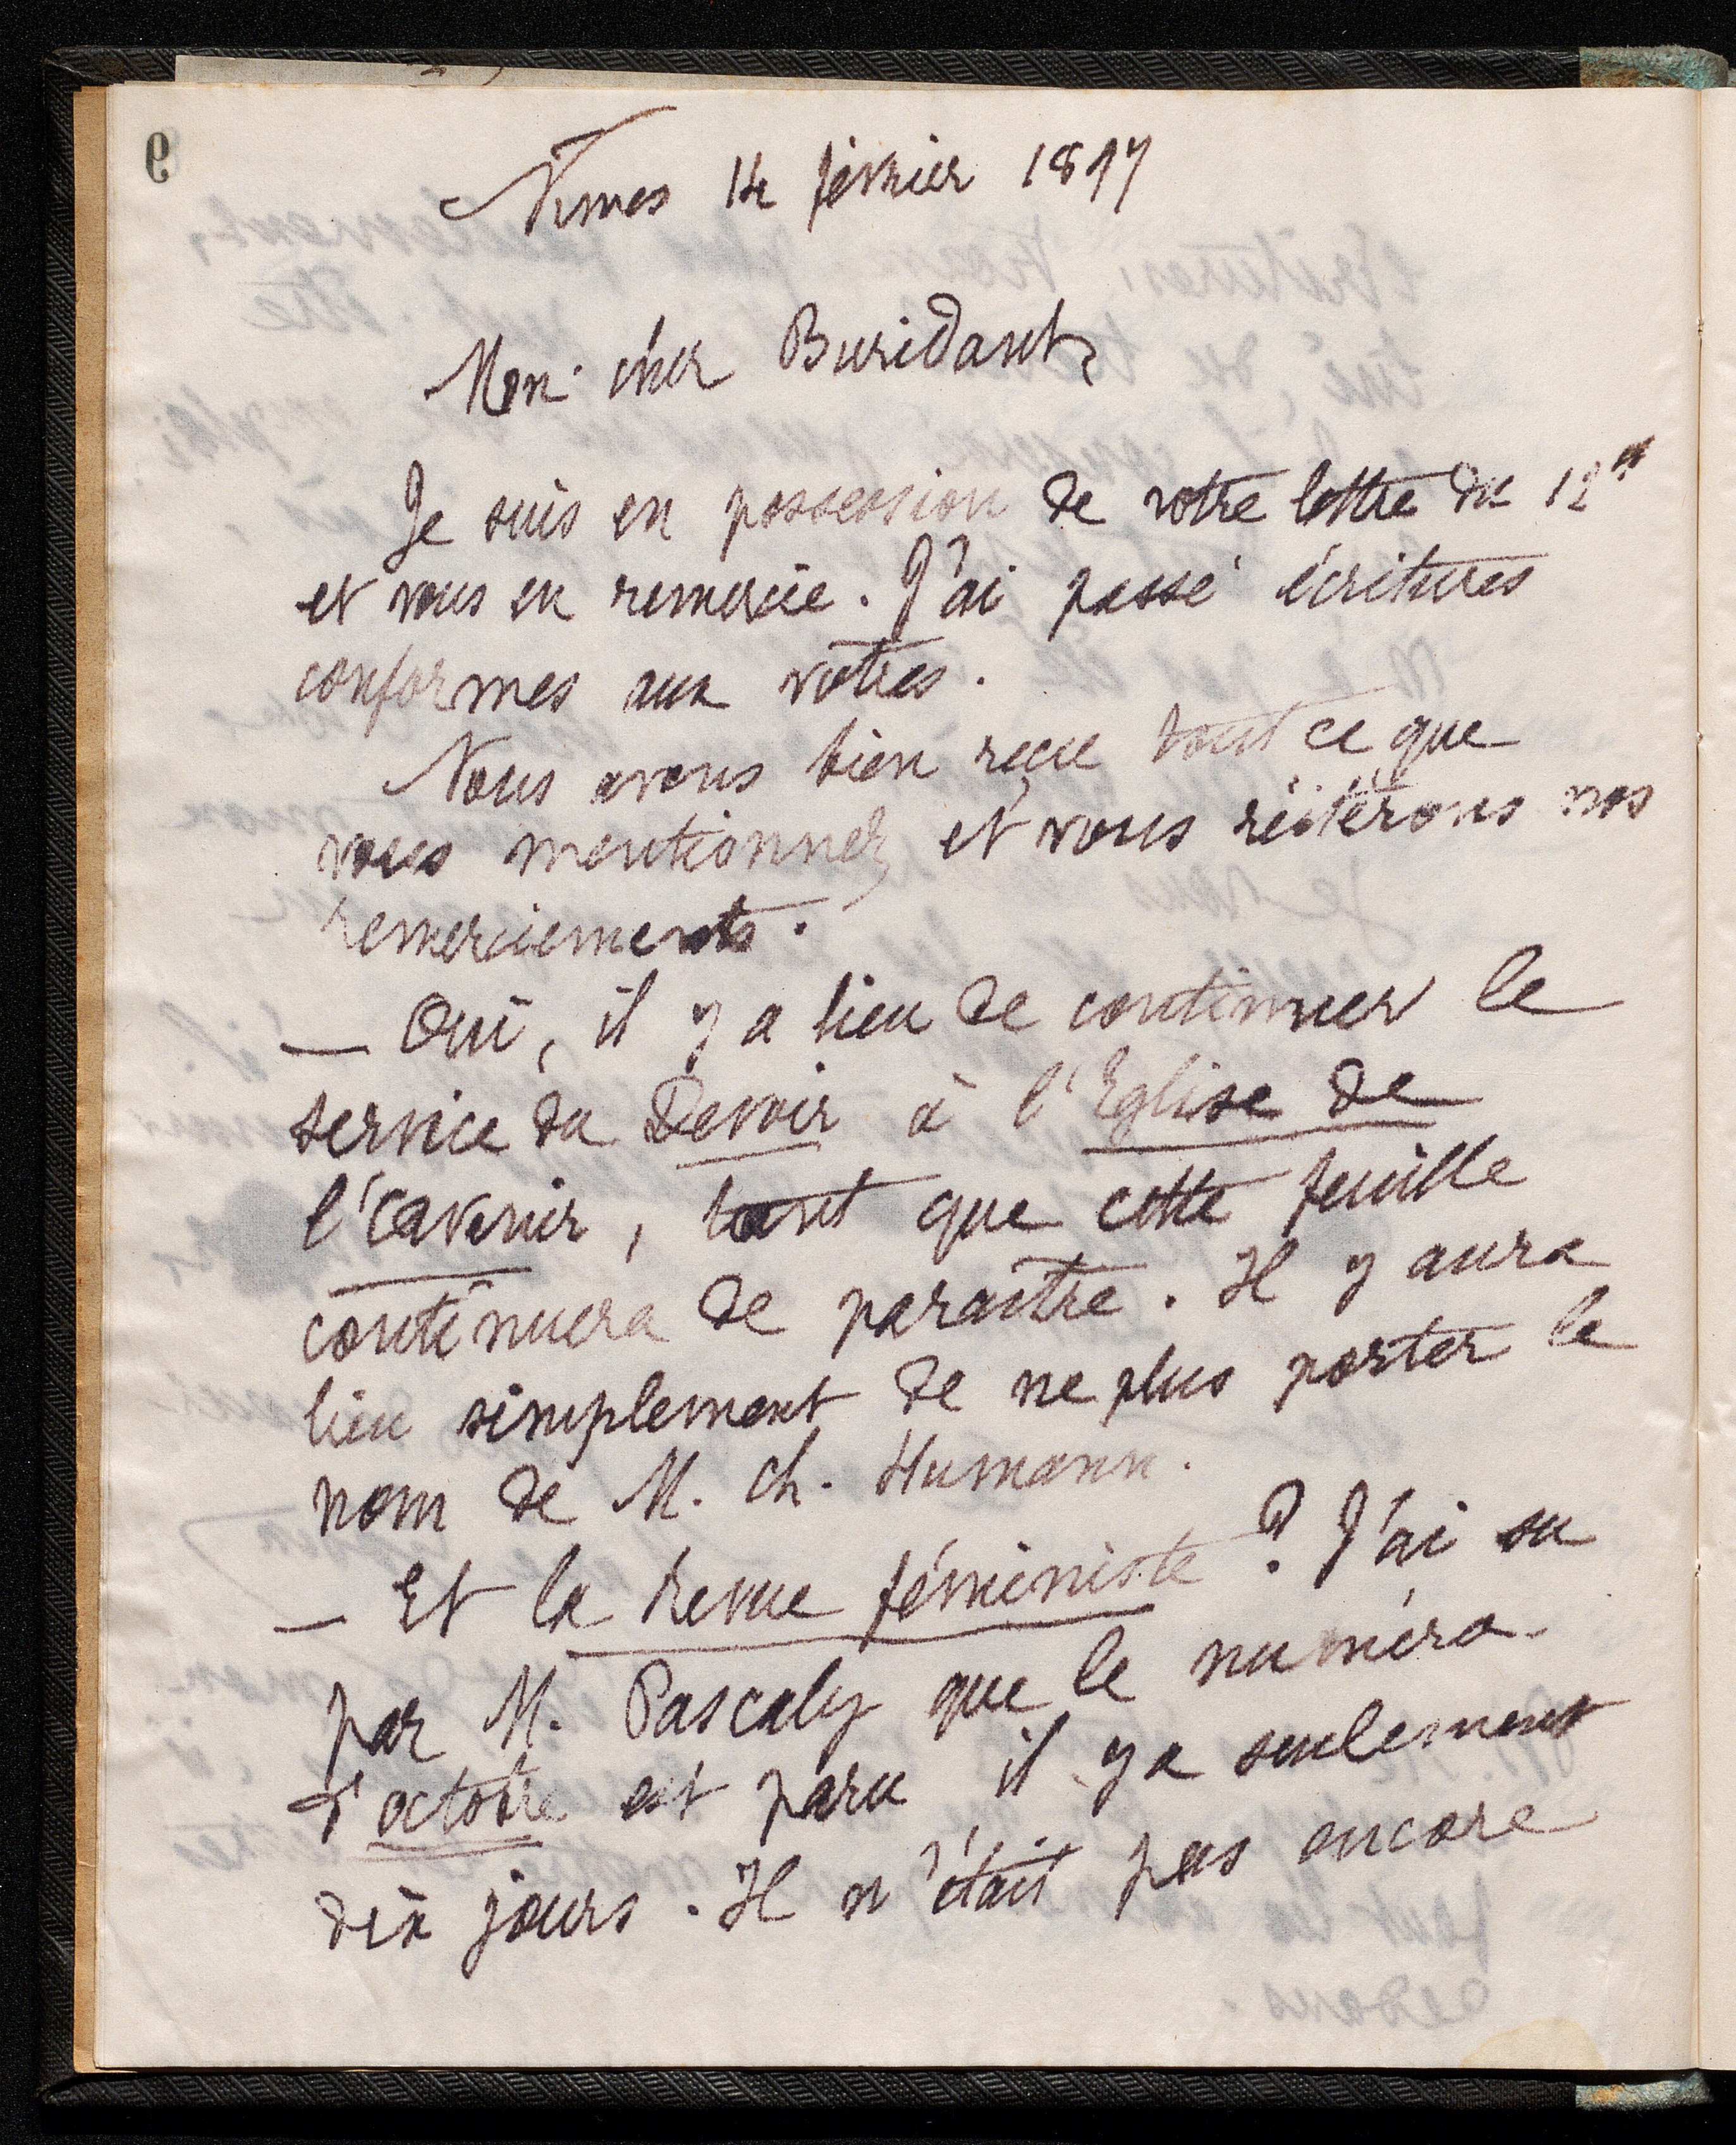 9
Nimes 14 février 1897
Mon cher Buridant,
Je suis en possession de votre lettre du 12 ct
et vous en remercie. J'ai passé écritures
conformes aux vôtres.
Nous avons bien reçu tout ce que
vous mentionnez et vous réitérons nos
remerciements.
— Oui, il y a lieu de continuer le
service du Devoir à l'Eglise de
l'avenir, tant que cette feuille
continuera de paraître. Il y aura
lieu simplement de ne plus porter le
nom de M. Ch. Humann.
— Et la Revue féministe ? J'ai su
par M. Pascaly que le numéro
d'octobre est paru il y a seulement
dix jours. Il n'était pas encore